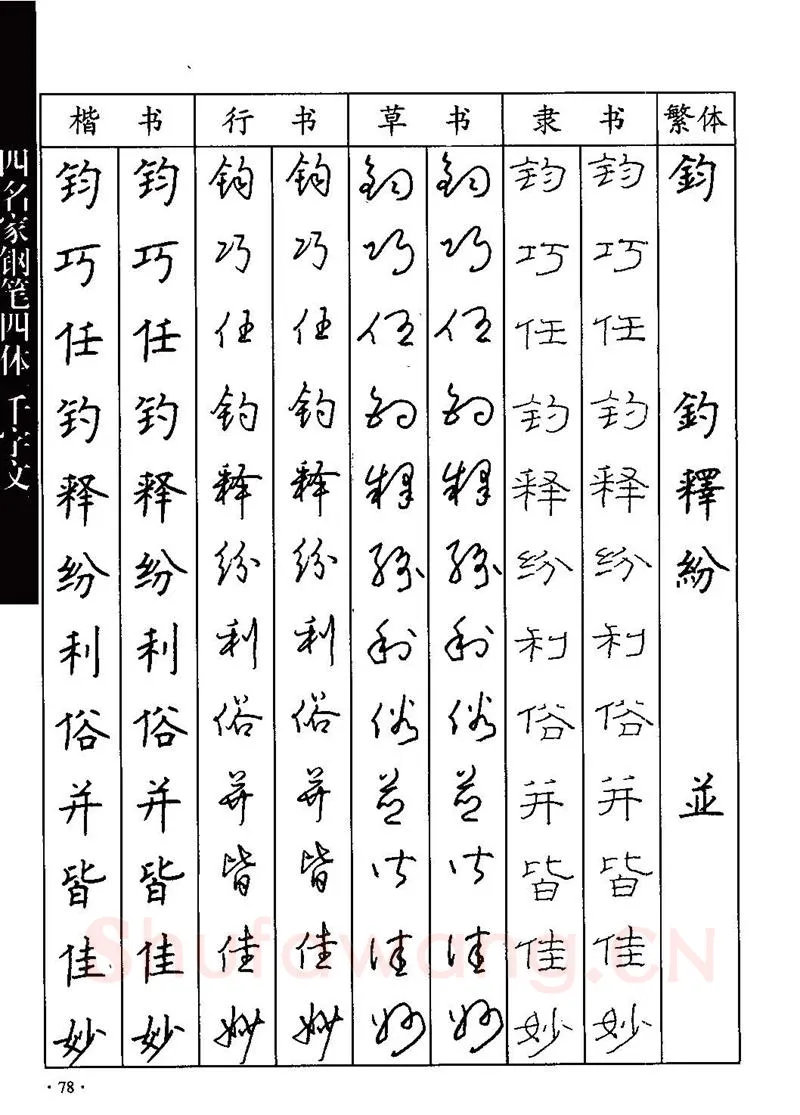 四名家钢笔四体 千字文
楷书 行书 草书 隶书 繁体
钧 钧 钧 钧 钧 钧 钧 钧 鈞
巧 巧 巧 巧 巧 巧 巧 巧
任 任 任 任 任 任 任 任
钓 钓 钓 钓 钓 钓 钓 钓 釣
释 释 释 释 释 释 释 释 釋
纷 纷 纷 纷 纷 纷 纷 纷 紛
利 利 利 利 利 利 利 利
俗 俗 俗 俗 俗 俗 俗 俗
并 并 并 并 并 并 并 并 並
皆 皆 皆 皆 皆 皆 皆 皆
佳 佳 佳 佳 佳 佳 佳 佳
妙 妙 妙 妙 妙 妙 妙 妙
Shufawang.CN
·78·